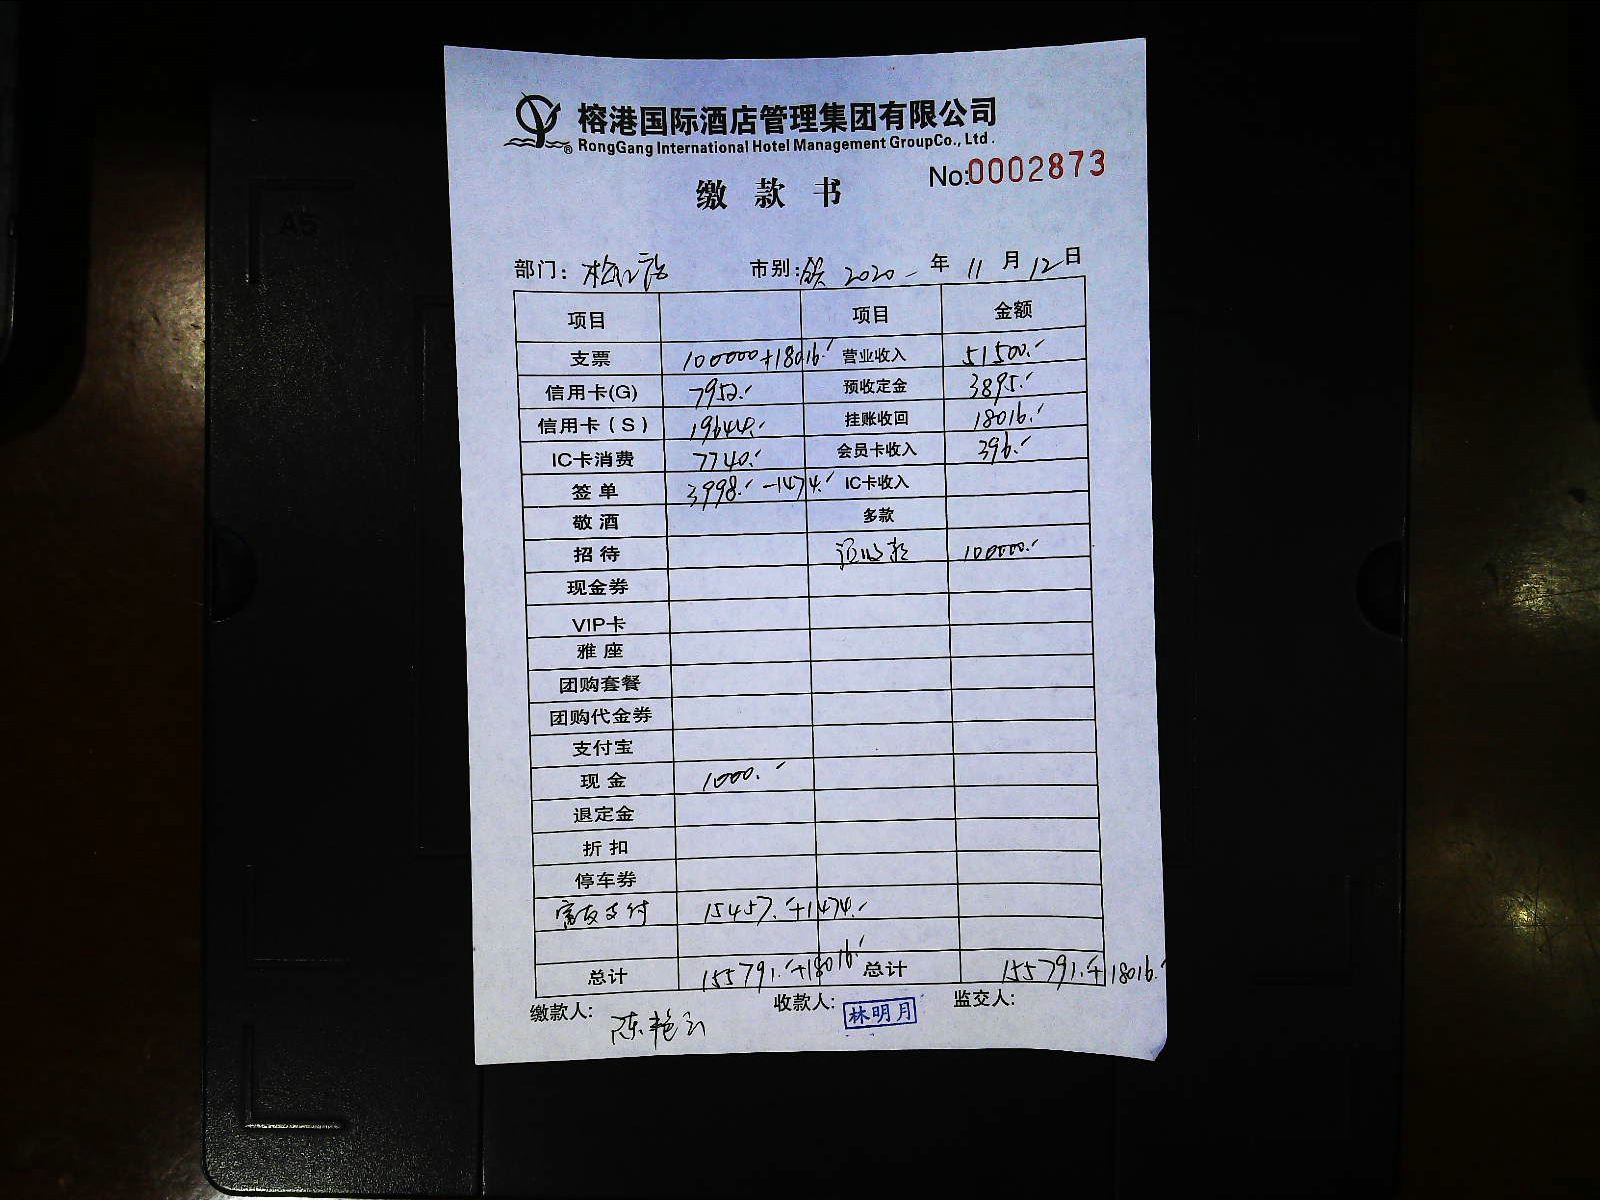 榕港国际酒店管理集团有限公司
® RongGang International Hotel Management GroupCo., Ltd .
No:0002873
缴 款 书
部门: 市别: 2020 年 11 月 12 日
项目 项目 金额
支票 100000+18016.- 营业收入 51500.-
信用卡(G) 7952.- 预收定金 3895.-
信用卡(S) 19644.- 挂账收回 18016.-
IC卡消费 7740.- 会员卡收入 396.-
签 单 3998.- -1474.- IC卡收入
敬 酒 多款
招待 预收款 100000.-
现金券
VIP卡
雅 座
团购套餐
团购代金券
支付宝
现 金 1000.-
退定金
折 扣
停车券
富友支付 15457.-+1474.-
总计 155791.-+18016.- 总计 155791.-+18016.-
缴款人: 陈艳 收款人: 林明月 监交人:
A5